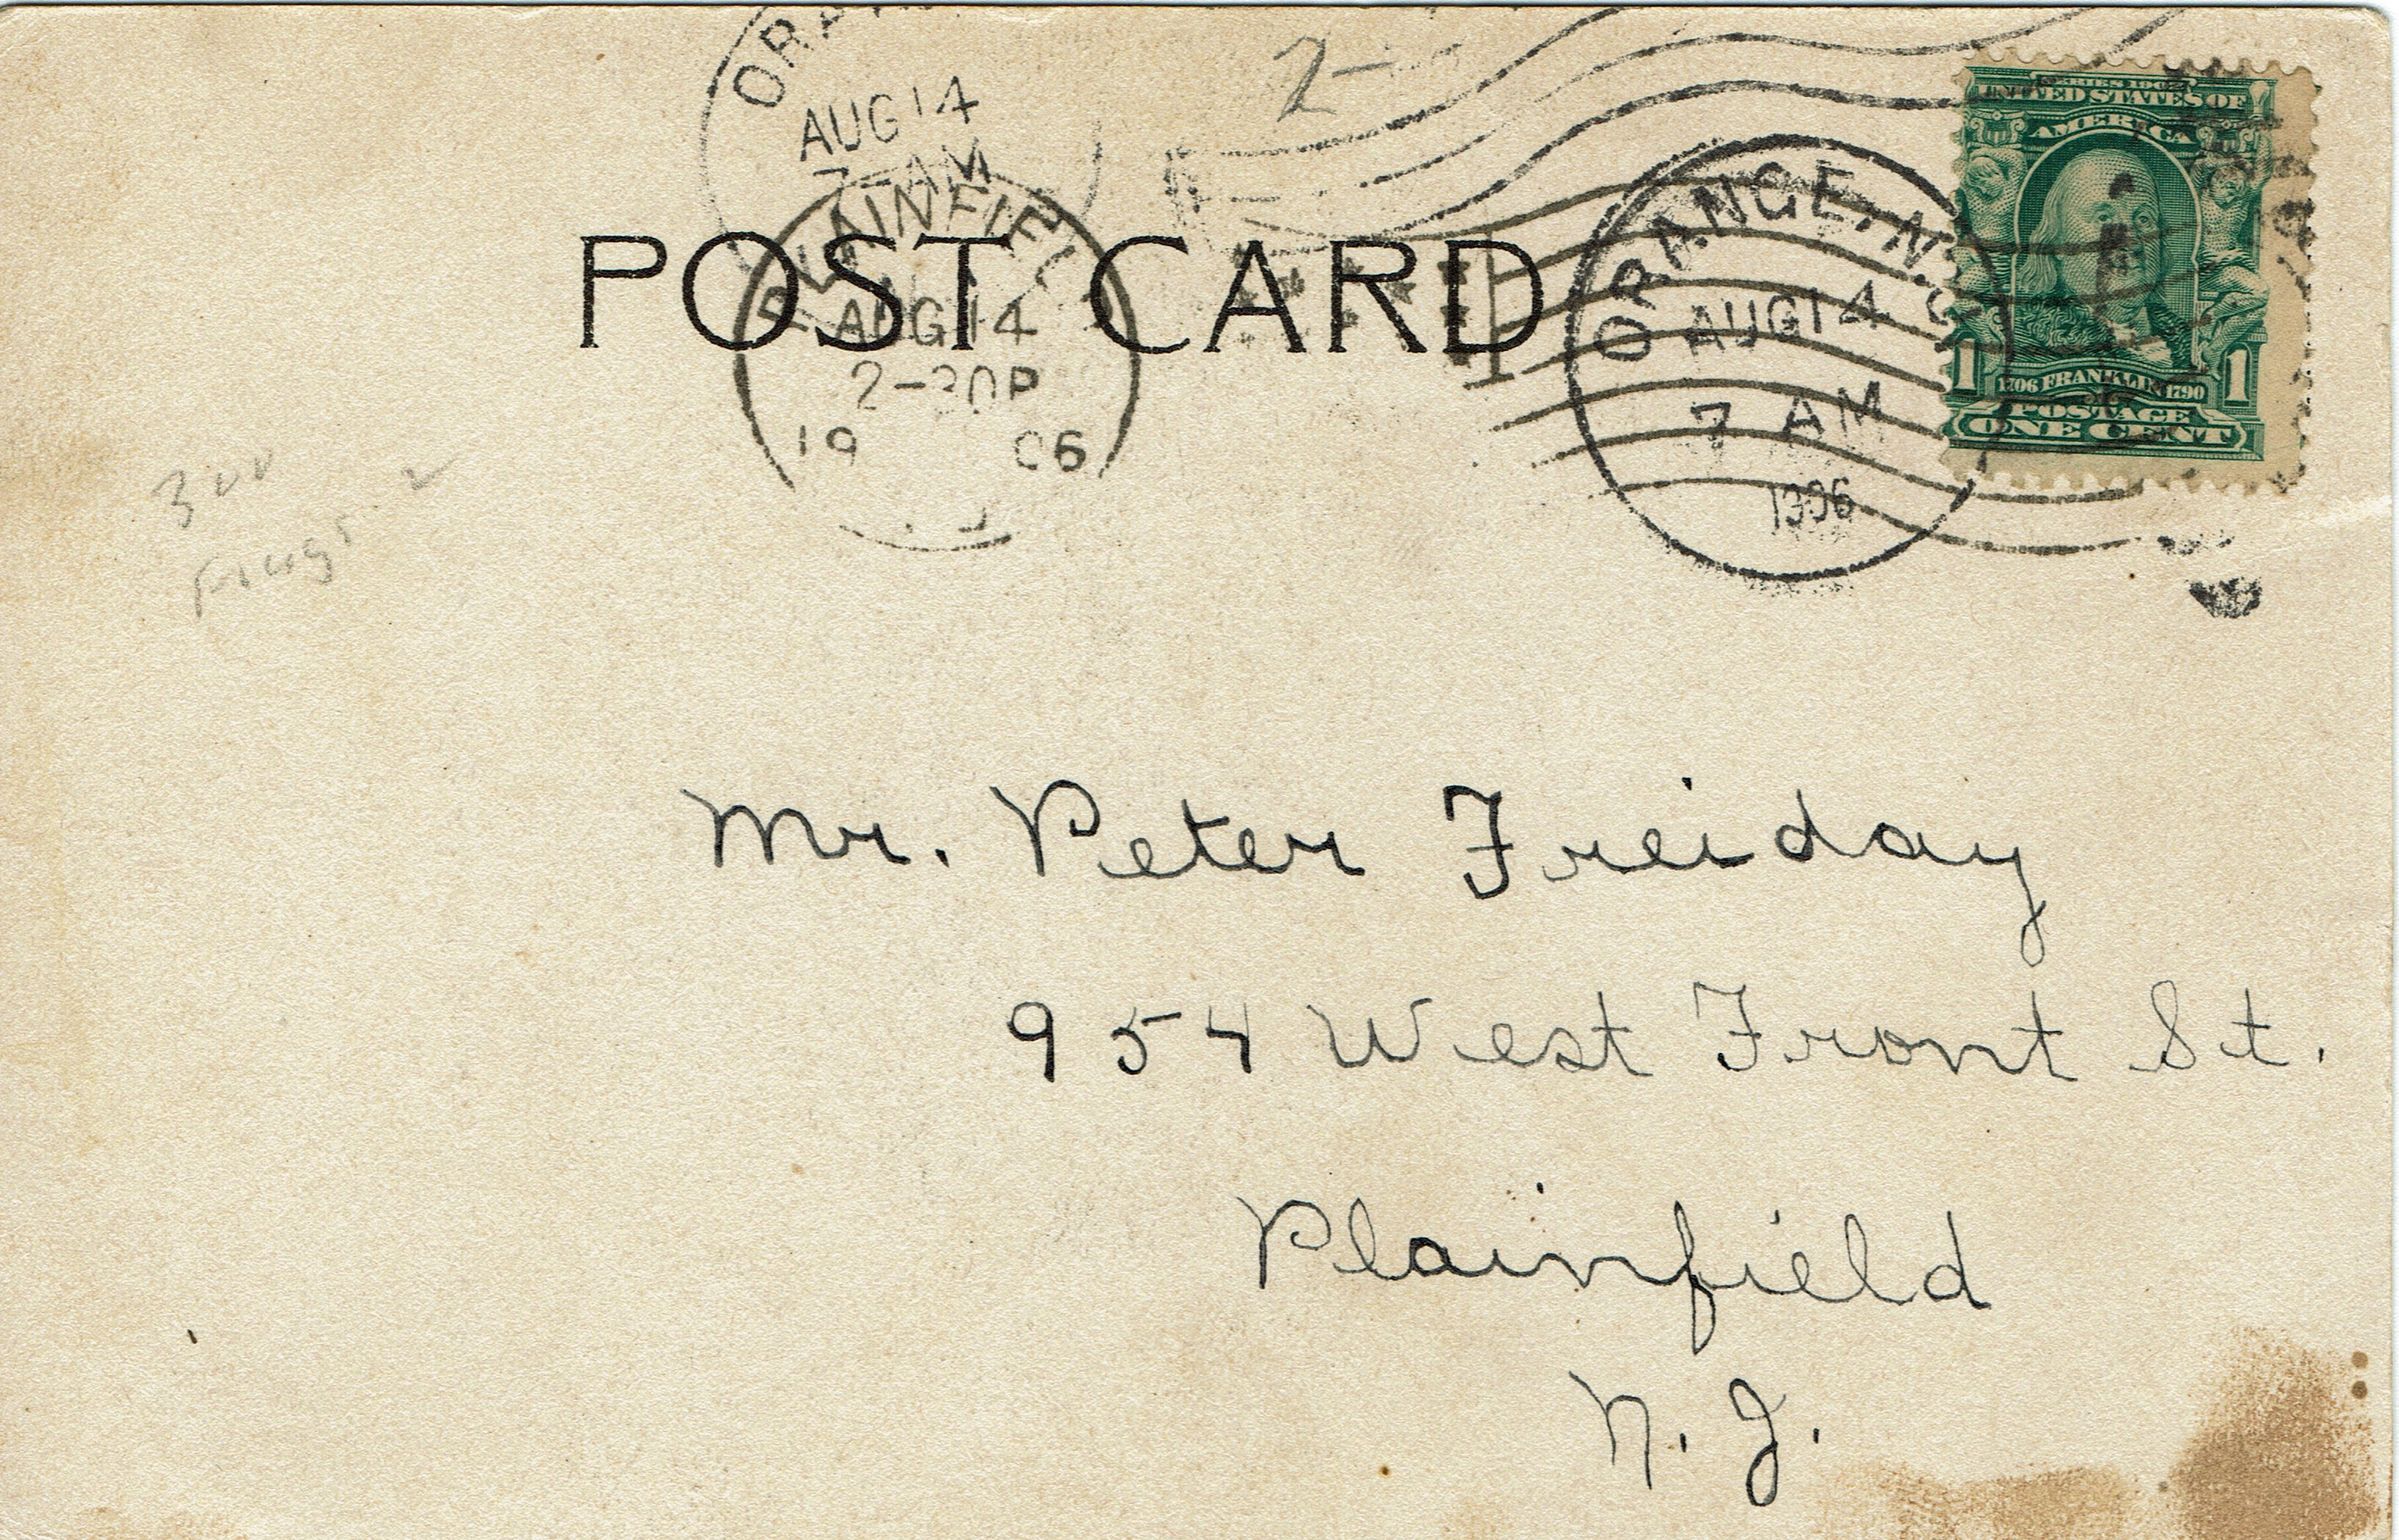 AUG 14
7-AM
2-
POST CARD
PLAINFIEL
AUG 14
2-30P
19 06
ORANGE, N.J.
AUG 14
7 AM
1906
SERIES 1902
UNITED STATES OF
AMERICA
1 1706 FRANKLIN 1790 1
POSTAGE
ONE CENT
Mr. Peter Freiday
954 West Front St.
Plainfield
N. J.